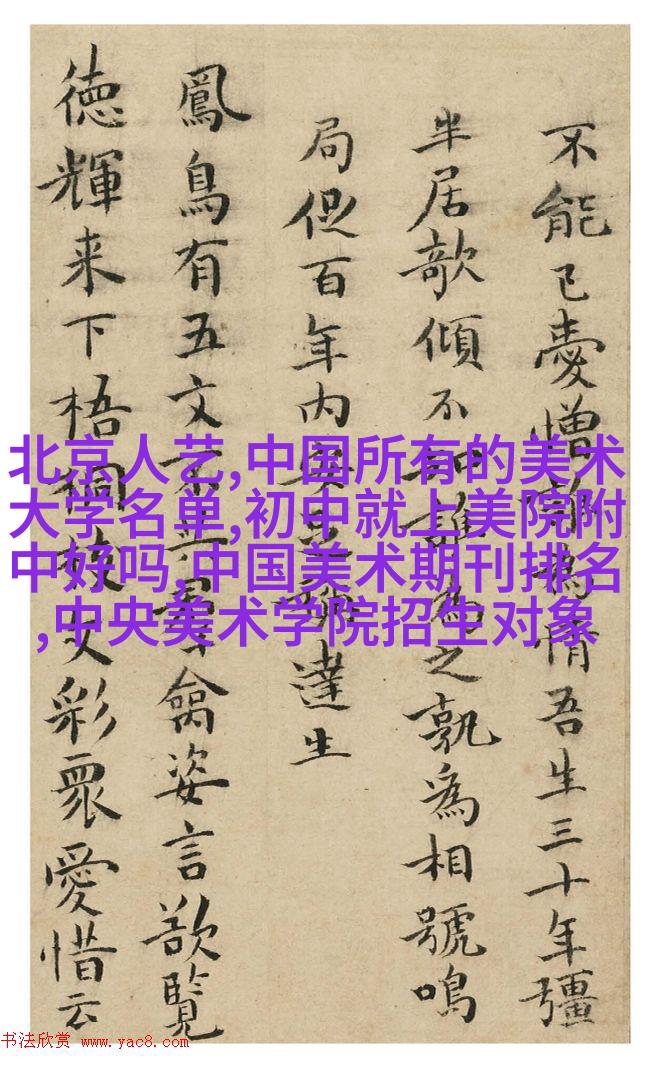 不能已憎為情吾生三十年彊
半居欹傾不知誰為之孰為相號鳴
局促百年內達生
鳳鳥有五文不與羣禽姿言欲覧
徳輝来下梧桐枝文彩眾愛惜云
北京人艺,中国所有的美术
大学名单,初中就上美院附
中好吗,中国美术期刊排名
,中央美术学院招生对象
书法欣赏 www.yac8.com